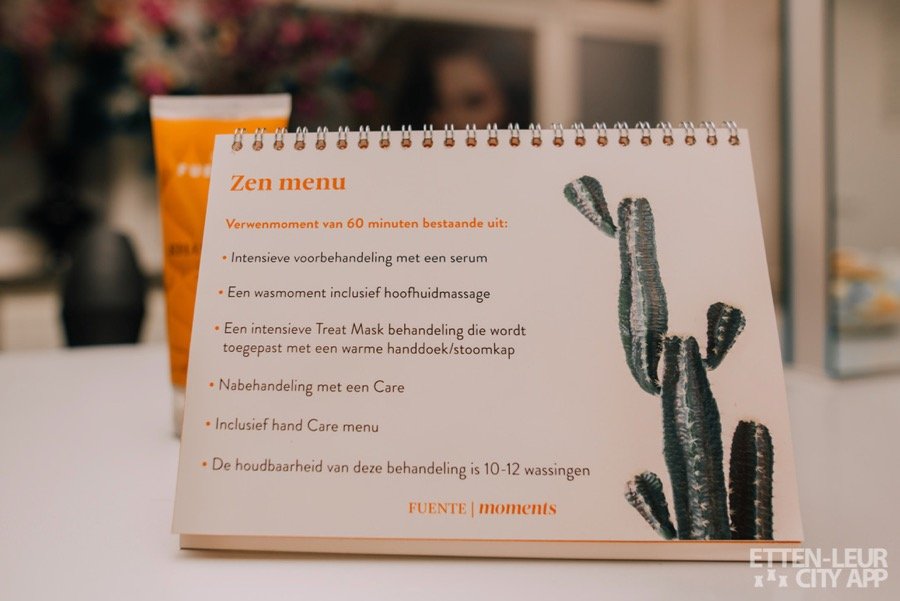 Zen menu
Verwenmoment van 60 minuten bestaande uit:
• Intensieve voorbehandeling met een serum
• Een wasmoment inclusief hoofhuidmassage
• Een intensieve Treat Mask behandeling die wordt
toegepast met een warme handdoek/stoomkap
• Nabehandeling met een Care
• Inclusief hand Care menu
• De houdbaarheid van deze behandeling is 10-12 wassingen
FUENTE | moments
ETTEN-LEUR
CITY APP